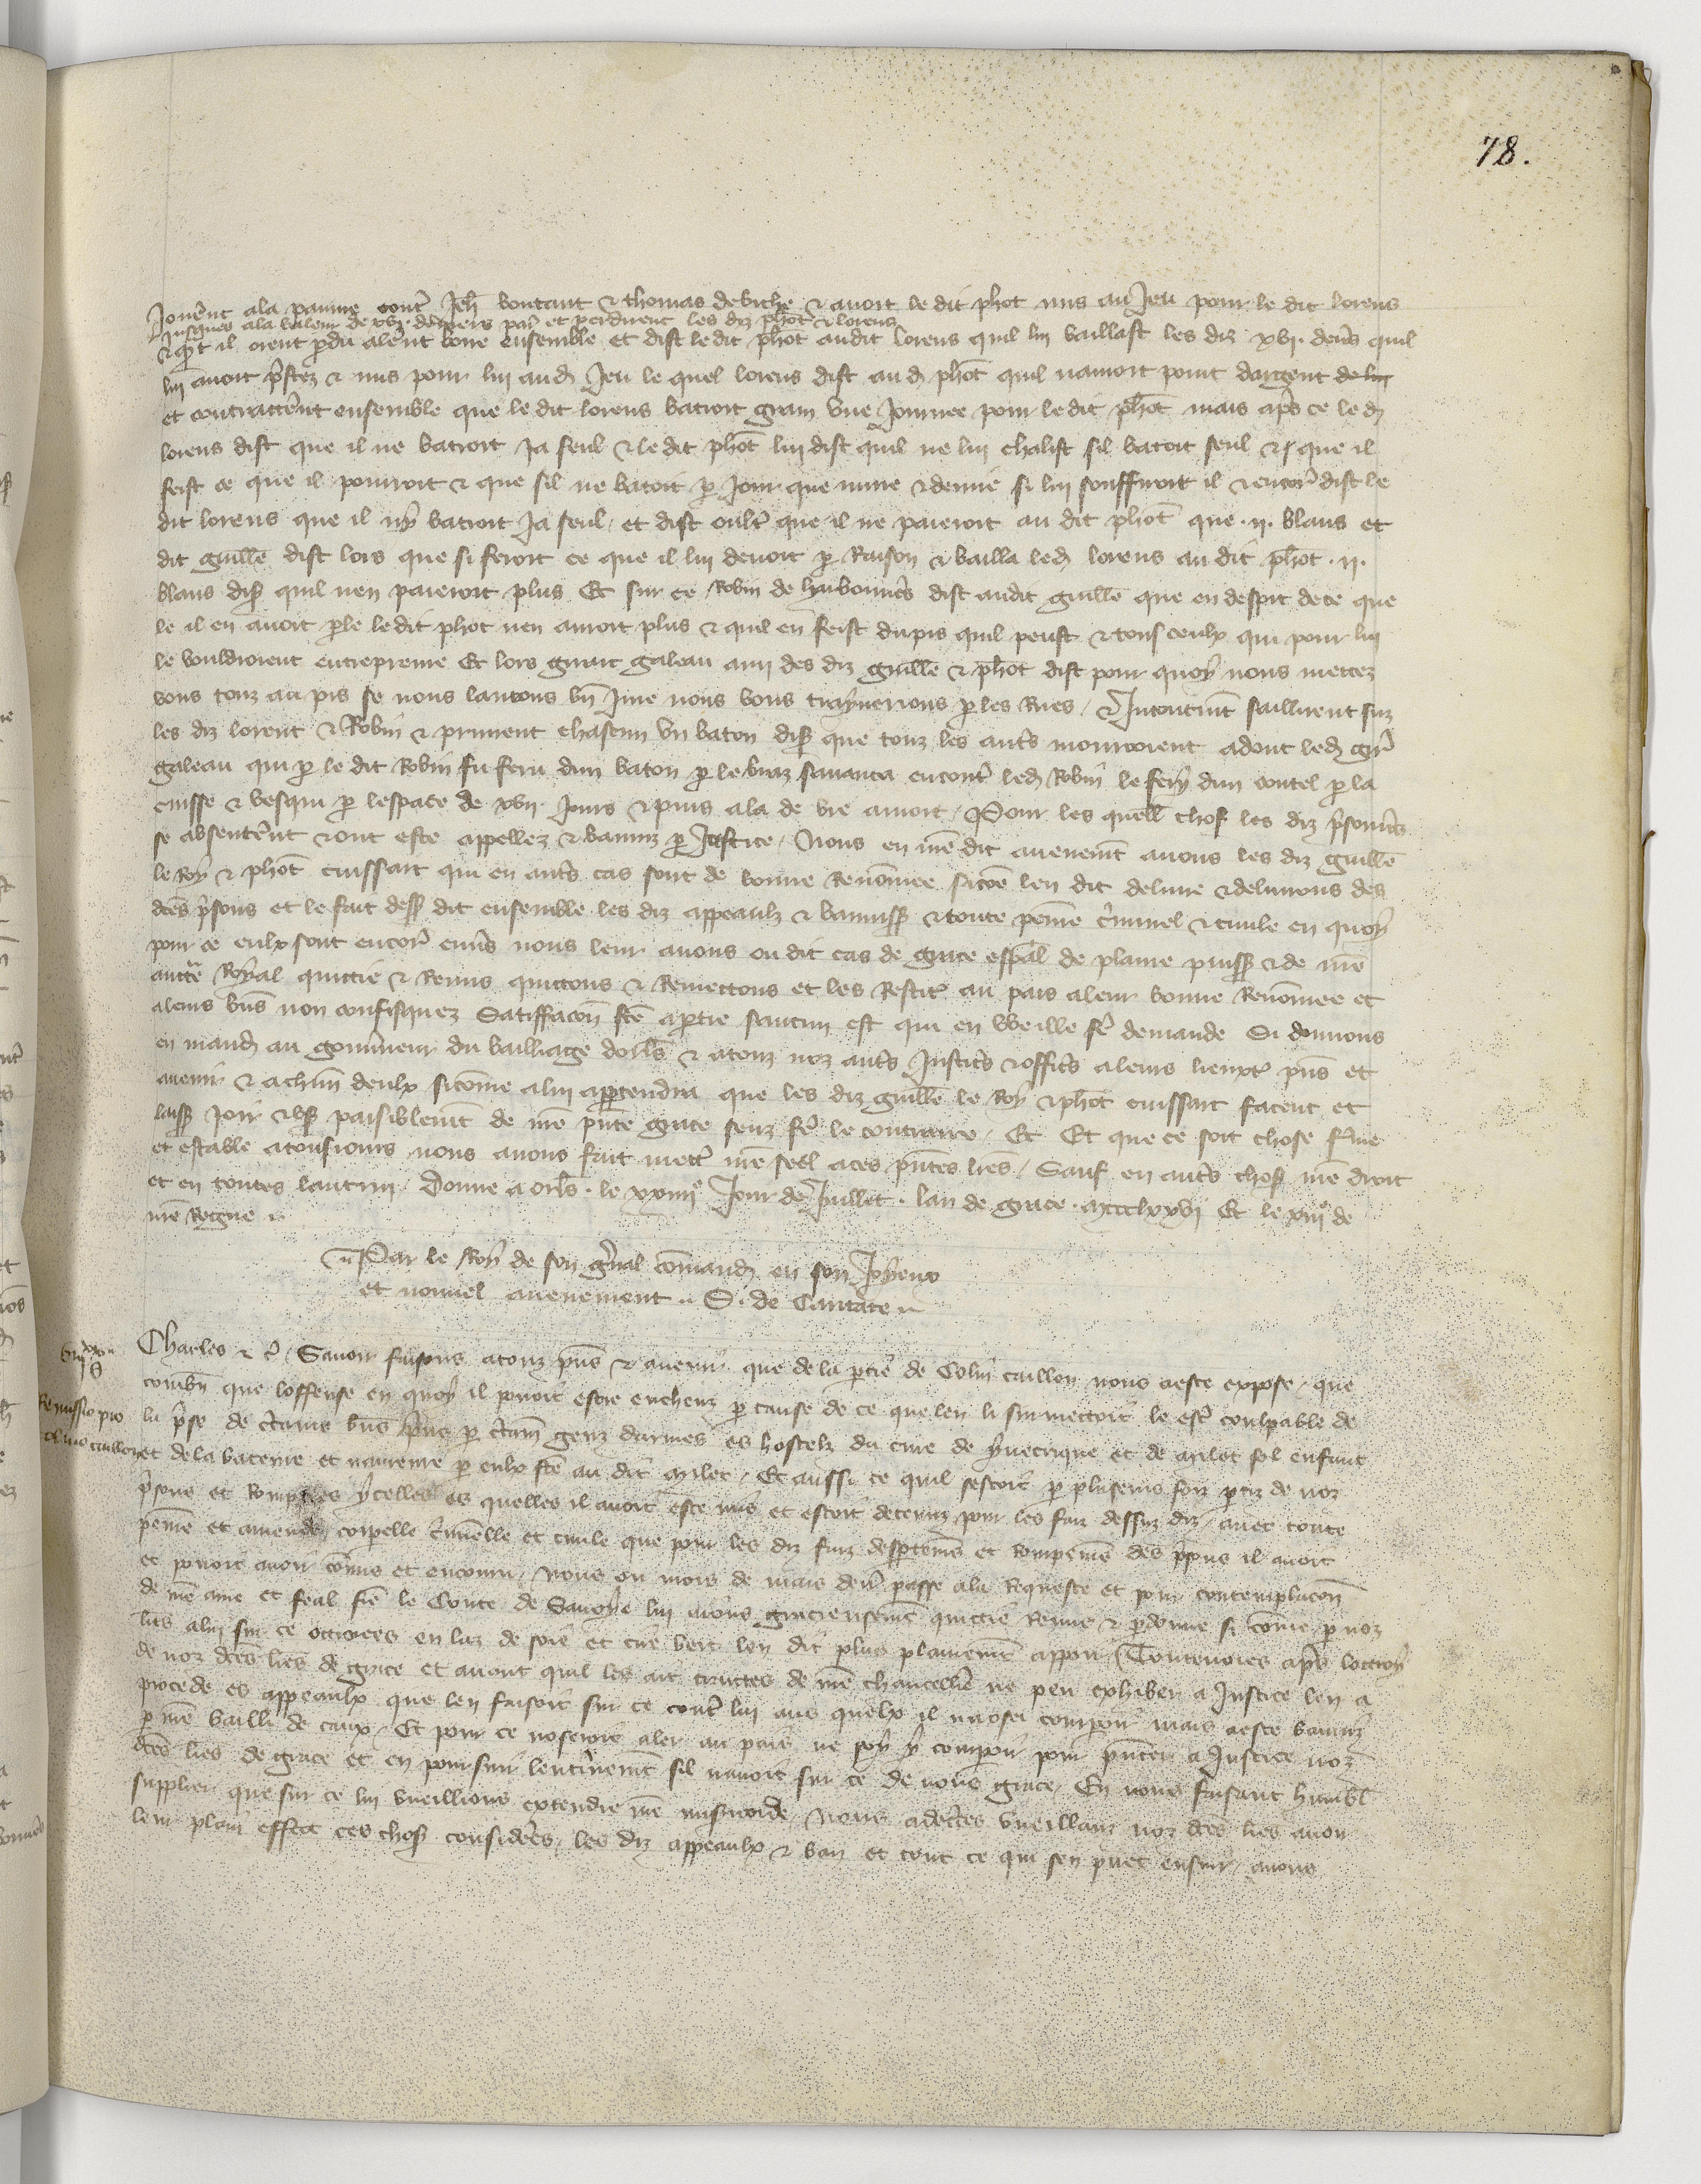 78.
Jouerent ala paume contre Jeh boutant & thomas debiche & auoit le dit phot mis au Jeu pour le dit lorens
Jusques ala valeur de xvj. deniers par et perdirent les diz phot & lorens
& quant il orent perdu alerent boire ensemble et dist le dit phot audit lorens quil lui baillast les diz xvj. deniers quil
lui auoit prestez & mis pour lui aud Jeu le quel lorens dist au d phot quil nauoit point dargent de lui
et contracterent ensemble que le dit lorens batroit grain vne Journee pour le dit phot mais apres ce le d
lorens dist que il ne batroit Ja seul & le dit phot lui dist quil ne lui chalist sil batoit seul & que il
feist ce que il pourroit & que sil ne batoit par Jour que mine & demie si lui souffiroit il & encores dist le
dit lorens que il ny batroit Ja seul, et dist oultre que il ne paieroit au dit phot que .ii. blans et
dit guille dist lors que si feroit ce que il lui deuoit par Raison & bailla led lorens au dit phot .ii.
blans dis quil nen paieroit plus Et sur ce Robin de dist audit guille que en despit de ce que
le il en auoit parle le dit phot nen auroit plus & quil en feist du pis quil peust & tous ceulx qui pour lui
le vouldroient entreprenre Et lors girart galeau amy des diz guille & phot dist pour quoy nous mettez
vous touz au pis se nous lauions vn Jure nous vous traynerions par les Rues, & Incontinent saillirent suz
les diz lorent & Robin & prinrent chascun vn baton dis que touz les autres mourroient adont led gir
galeau qui par le dit Robin fu feru dun baton par le braz sauanca encontre led Robin le fery dun coutel par la
cuisse & vesqui par lespace de xvij. Jours & puis ala de vie a mort, Pour les quelles choses les diz prisonniers
se absenterent & ont este appellez & banniz par Justice, Nous en nre dit auenement auons les diz guille
le Roy & phot cuissart qui en autres cas sont de bonne Renommee sicome len dit deliure & deliurons des
dctes prisons et le fait dess dit ensemble les diz appeaulx & banniss & toute peine criminel & ciuile en quoy
pour ce eulx sont encores enuers nous leur auons ou dit cas de grace espal de plaine puiss & de nre
auctte Royal quittie & Remis quittons & Remettons et les Restit au pais a leur bonne Renommee et
a leurs biens non confisquez Satiffacon fte a partie saucun est qui en vueille fe demande Si donnons
en mand au gouuerneur du bailliage dorls & a touz noz autres Justiciers & officiers a leurs lieuxt pns et
auenir & a chun deulx sicomme a lui appartendra que les diz guille le Roy & phot cuissart facent et
laiss Joir & vs paisiblement de nre pnte grace senz fe le contraire, Et Et que ce soit chose ferme
et estable a tousiours nous auons fait mettre nre seel a ces pntes lres, Sauf en autres choses nre droit
et en toutes lautrui. Donne a orls. le xxiiij Jour de Juillet. lan de grace. mccclxxvj Et le xiij de
nre Regne
Par le Roy de son gnal commandement en son Joyeux
et nouuel auenement .. S. de Caritate
Charles & c. Sauoir faisons a touz pns & auenir que de la partie de Colin caillon nous a este expose, que
combien que loffense en quoy il pouoit estre encheuz par cause de ce que len li surmettoit le estre coulpable de
Remissio pro
la prise de certains biens prins par certain genz darmes es hostelz du cure de yuecrique et de milet fol enfant
et de la bateure et naureure par eulx fte au dit milet, Et aussi ce quil sestoit par plusieurs foiz partiz de noz
prisons et Romp ycelles es quelles il auoit este mis et estoit detenuz pour les faiz dessuz diz, auec toute
peine et amende, corpelle criminelle et ciuile que pour les diz faiz et Rompemens des prisons il auoit
et pouoit auoir commis et encouru, Nous ou mois de mars derr passe a la Requeste et pour contemplacon
de nre ame et feal frere le Conte de Sauoye lui auons gracieusement quittie Remis & pardonne si come par noz
lres a lui sur ce ottroiees en laz de soie et cire vert len dit plus plainement apparoir, Toutesuoies apres lottroy
de noz dctes lres de grace et auant quil les ait traictes de nre chancellerie ne peu exhiber a Justice len a
procede es appeaulx que len faisoit sur ce contre lui aus quelx il na ose comparoir mais a este banniz
par nre bailli de caux, Et pour ce noseroit aler au pais ne soy y comparoir pour pnter a Justice noz
dctes lres de grace et en poursuir lenterinement sil nauoit sur ce de nous grace, En nous faisant humbl
supplier que sur ce lui vueillions extendre nre misericorde, Nous adectes vueillanz noz dctes lres auoir
leur plain effect ces choses considerees, les diz appeaulx & ban et tout ce qui sen puet ensuir, auons